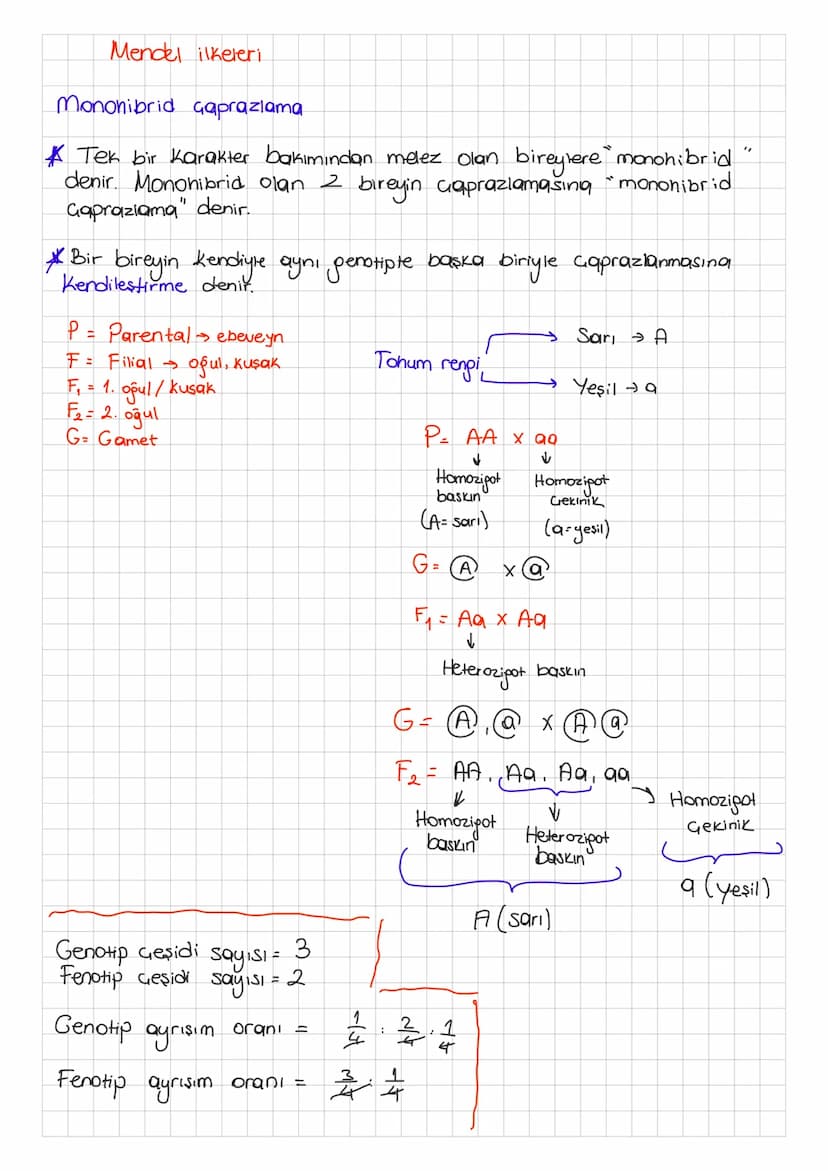 Mendel ilkeleri
Monohibrid çaprazlama
Tek bir karakter bakımından melez olan bireylere "monohibrid"
denir. Monohibrid olan 2 bireyin çaprazlamasına "monohibrid
çaprazlama" denir.
Bir bireyin kendiyle aynı genotipte başka biriyle çaprazlanmasına
kendileştirme denir.
P = Parental → ebeveyn
F = Filial → oğul, kuşak
F₁ = 1. oğul / kuşak
F₂ = 2. oğul
G = Gamet
Tohum rengi
Sarı → A
Yeşil → a
P = AA x aa
Homozigot baskın
(A = sarı)
Homozigot çekinik
(a = yeşil)
G = A x a
F₁ = Aa x Aa
Heterozigot baskın
G = A, a x A a
F₂ = AA, Aa, Aa, aa
Homozigot
baskın
Heterozigot
baskın
Homozigot
çekinik
A (sarı)
a (yeşil)
Genotip çeşidi sayısı = 3
Fenotip çeşidi sayısı = 2
Genotip ayrışım oranı = 1/4 : 2/4 : 1/4
Fenotip ayrışım oranı = 3/4 : 1/4